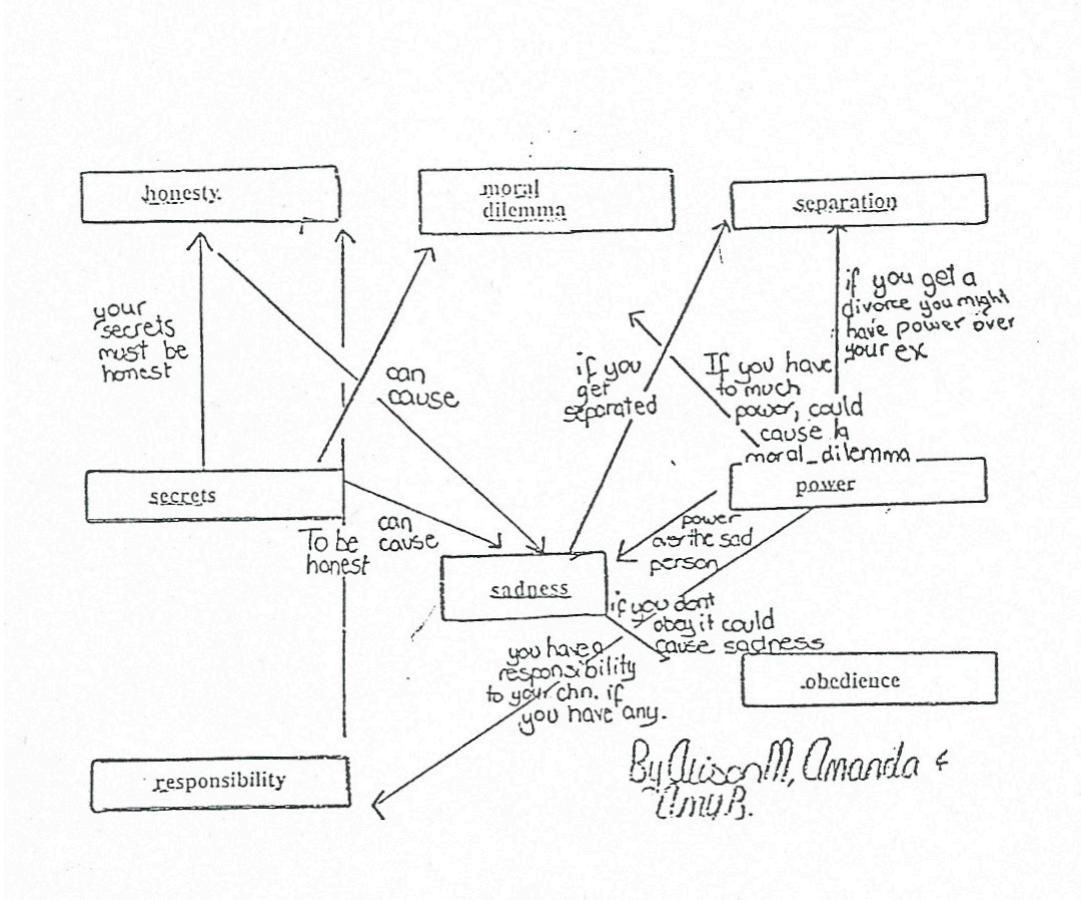 honesty.
moral
dilemma
separation
your
secrets
must be
honest
can
cause
if you
get
separated
If you have
to much
power, could
cause a
moral_dilemma
if you get a
divorce you might
have power over
your ex
secrets
To be
honest
can
cause
sadness
power
over the sad
person
power
if you dont
obey it could
cause sadness
you have a
responsibility
to your chn. if
you have any.
obedience
responsibility
By Alison M, Amanda &
Amy B.